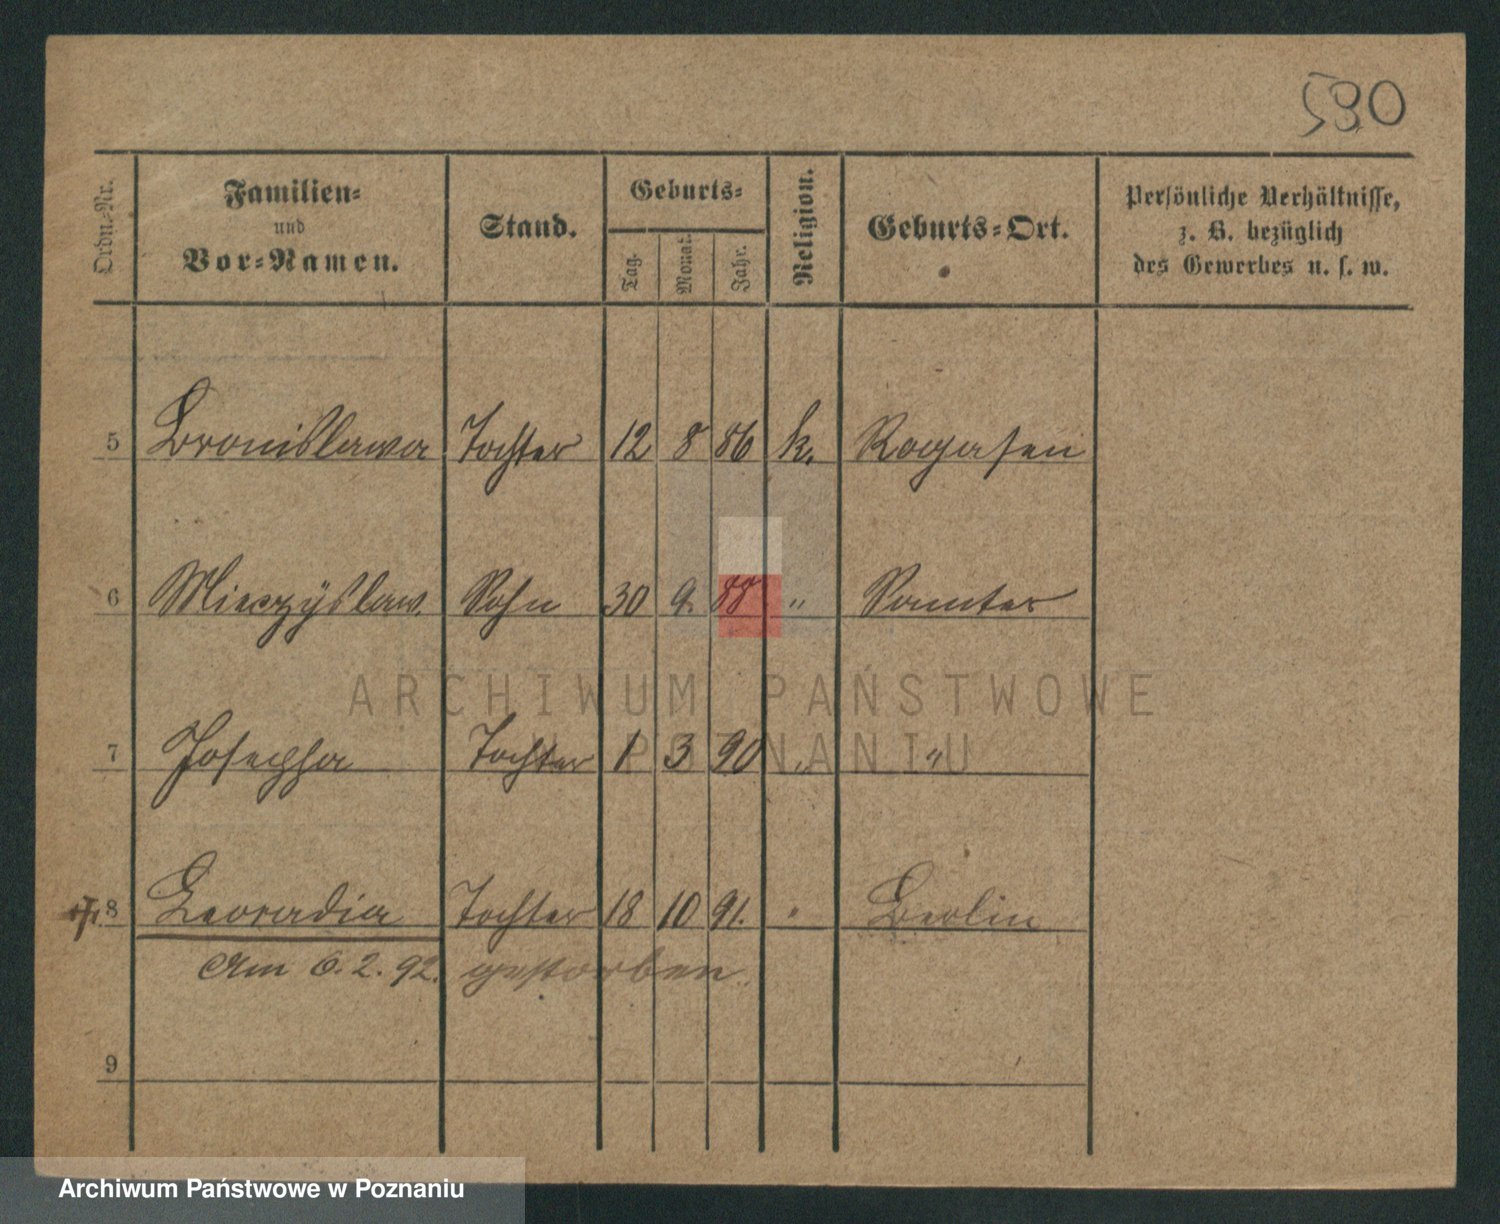 530
Ordn.-Nr.
Familien-
und
Vor-Namen.
Stand.
Geburts-
Tag.
Monat.
Jahr.
Religion.
Geburts-Ort.
Persönliche Verhältnisse,
z. B. bezüglich
des Gewerbes u. s. w.
5 Bronislawa Tochter 12 8 86 k. Rogasen
6 Mieczÿslaw. Sohn 30 9. 88 " Samter
ARCHIWUM PAŃSTWOWE
W POZNANIU
7 Josepha Tochter 1 3 90 " "
8 Leocadia Tochter 18 10 91. " Berlin
Am 6. 2. 92. gestorben.
9
Archiwum Państwowe w Poznaniu